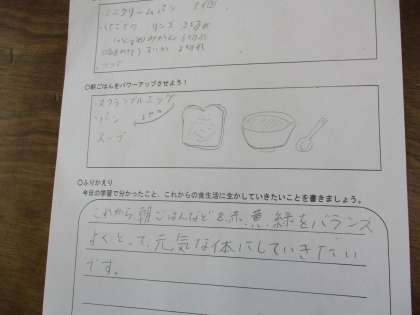 クリームパン 1個
りんご
○朝ごはんをパワーアップさせよう!
スクランブルエッグ
パン
スープ
○ふりかえり
今日の学習で分かったこと、これからの食生活に生かしていきたいことを書きましょう。
これから朝ごはんなどを赤、黄、緑をバランス
よくとって、元気な体にしていきたい
です。